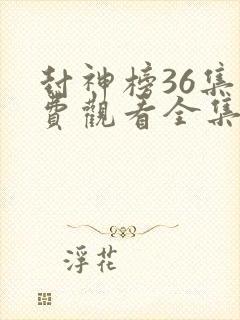 封神榜36集
費觀看全集
浮花